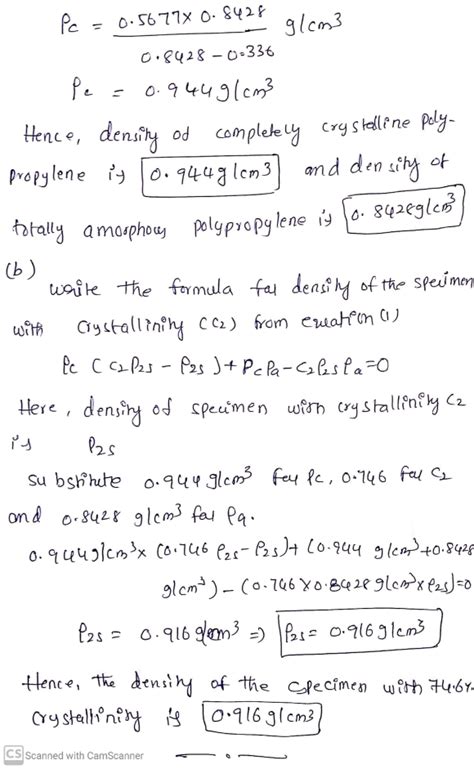 Pc = 0.5677 x 0.8428 g/cm³
0.8428 - 0.336
Pc = 0.944 g/cm³
Hence, density od completely crystalline Poly-
propylene is 0.944 g/cm3 and density of
totally amorphous polypropylene is 0.8428g/cm³
(b)
write the formula for density of the specimen
with crystallinity (C2) from equation (1)
Pc (C2P2s - P2s) + PcPa - C2P2sPa = 0
Here, density od specimen with crystallinity C2
is P2s
substitute 0.944 g/cm³ for Pc, 0.746 for C2
and 0.8428 g/cm³ for Pa.
0.944 g/cm³ x (0.746 P2s - P2s) + (0.944 g/cm³ + 0.8428
g/cm³) - (0.746 x 0.8428 g/cm³ x P2s) = 0
P2s = 0.916 g/cm³ => P2s = 0.916 g/cm3
Hence, the density of the specimen with 74.6%
crystallinity is 0.916 g/cm3
CS Scanned with CamScanner